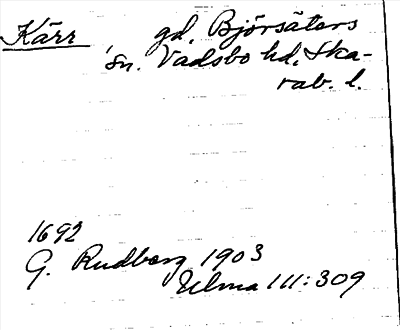 Kärr gd, Björsäters
sn. Vadsbo hd, Ska-
rab. l.
1692
G. Rudberg 1903
Ulma 111:309